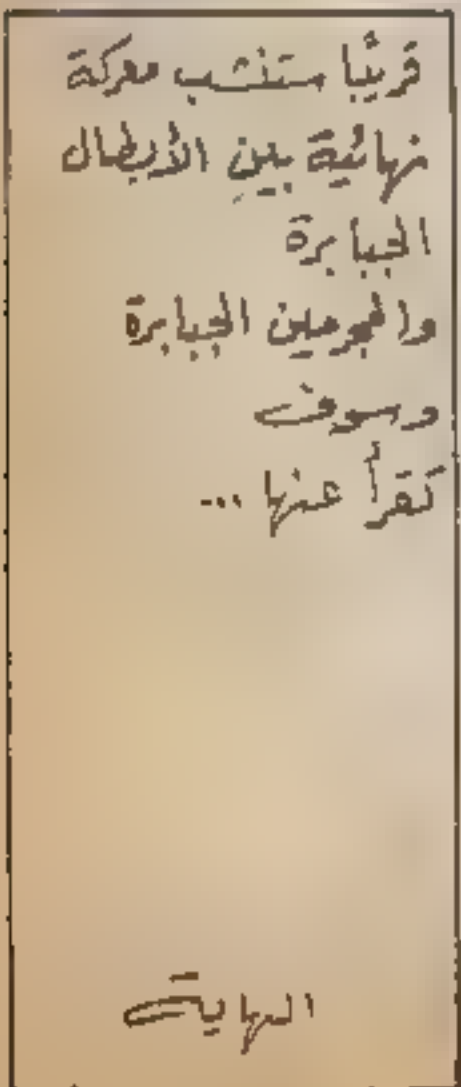 قريبًا ستنشب معركة
نهائية بين الأبطال
الجبابرة
والمجرمين الجبابرة
وسوف
تقرأ عنها ...
النهاية